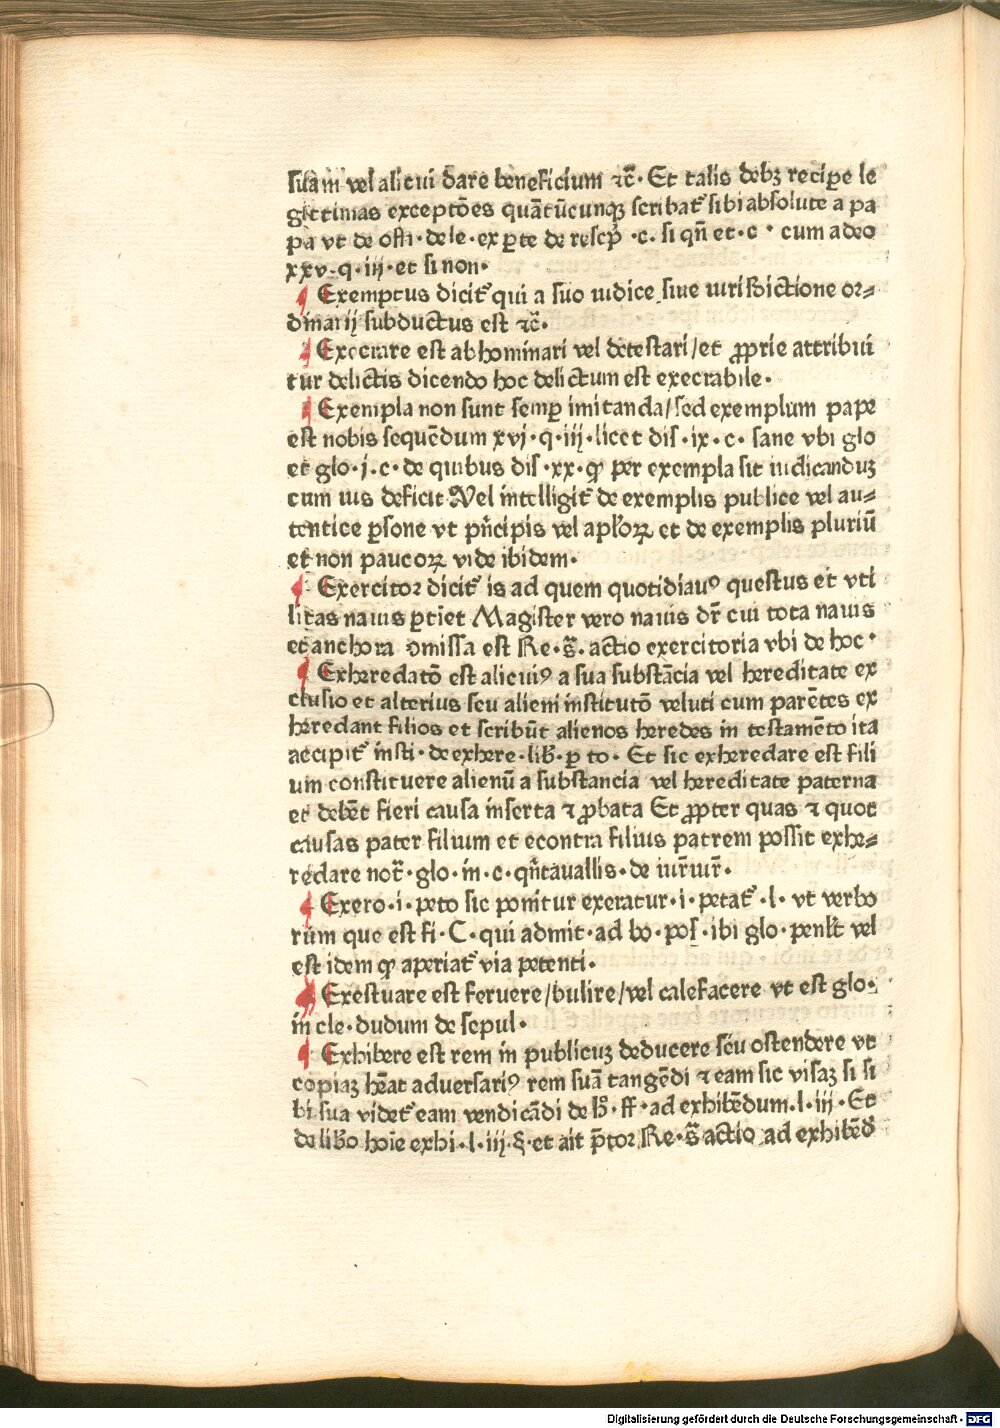 suam vel alicui dare beneficium ⁊c̄· Et talis debꝫ recipe le
gittimas exceptōes quātūcunqꝫ scribat᷑ sibi absolute a pa
pa vt de offi· dele· ex ꝑte de rescp̄ ·c· si qn̄ et·c· cum adeo
xxv·q·iij·et si non·
¶ Exemptus dicit᷑ qui a suo iudice siue iurisdictione or⸗
dinarij subductus est ⁊c̄·
¶ Execrare est abhominari vel detestari/et ꝓprie attribui
tur delictis dicendo hoc delictum est execrabile·
¶ Exempla non sunt semꝑ imitanda/sed exemplum pape
est nobis sequēdum xvj·q·iij·licet dis·ix·c· sane vbi glo
et glo·j·c·de quibus dis·xx·ꝙ per exempla sit iudicanduꝫ
cum ius deficit Vel intelligit᷑ de exemplis publice vel au⸗
tentice ꝑsone vt pn̄cipis vel apl̓oꝝ et de exemplis pluriū
et non paucoꝝ vide ibidem·
¶ Exercitor dicit᷑ is ad quem quotidianꝰ questus et vti
litas nauis ꝑtiet Magister vero nauis dr̄ cui tota nauis
et anchora omissa est Re·S̄· actio exercitoria vbi de hoc·
¶ Exheredatō est alicuiꝰ a sua substācia vel hereditate ex
clusio et alterius seu alieni institutō veluti cum parētes ex
heredant filios et scribūt alienos heredes in testamēto ita
accipit᷑ insti·de exhere·lib̓·ꝑ to· Et sic exheredare est fili
um constituere alienū a substancia vel hereditate paterna
et debēt fieri causa inserta ⁊ ꝓbata Et ꝓpter quas ⁊ quot
causas pater filium et econtra filius patrem possit exhe⸗
redare not̄·glo·in·c·qn̄tauallis·de iur̄iur̄·
¶ Exero·i·peto sic ponitur exeratur·i·petat᷑·l· vt verbo
rum que est fi·C·qui admit·ad bo·pos̄·ibi glo·penl̓t vel
est idem ꝙ aperiat᷑ via petenti·
¶ Exestuare est feruere/bulire/vel calefacere vt est glo·
in cle·dudum de sepul·
¶ Exhibere est rem in publicuꝫ deducere seu ostendere vt
copiaꝫ hēat aduersariꝰ rem suā tangēdi ⁊ eam sic visaꝫ si si
bi sua videt᷑ eam vendicādi de h̓·ff·ad exhibēdum·l·iij·Et
de lib̓o hoīe exhi·l·iij·§·et ait p̄tor Re·S̄ actio ad exhibēd̓
Digitalisierung gefördert durch die Deutsche Forschungsgemeinschaft - DFG